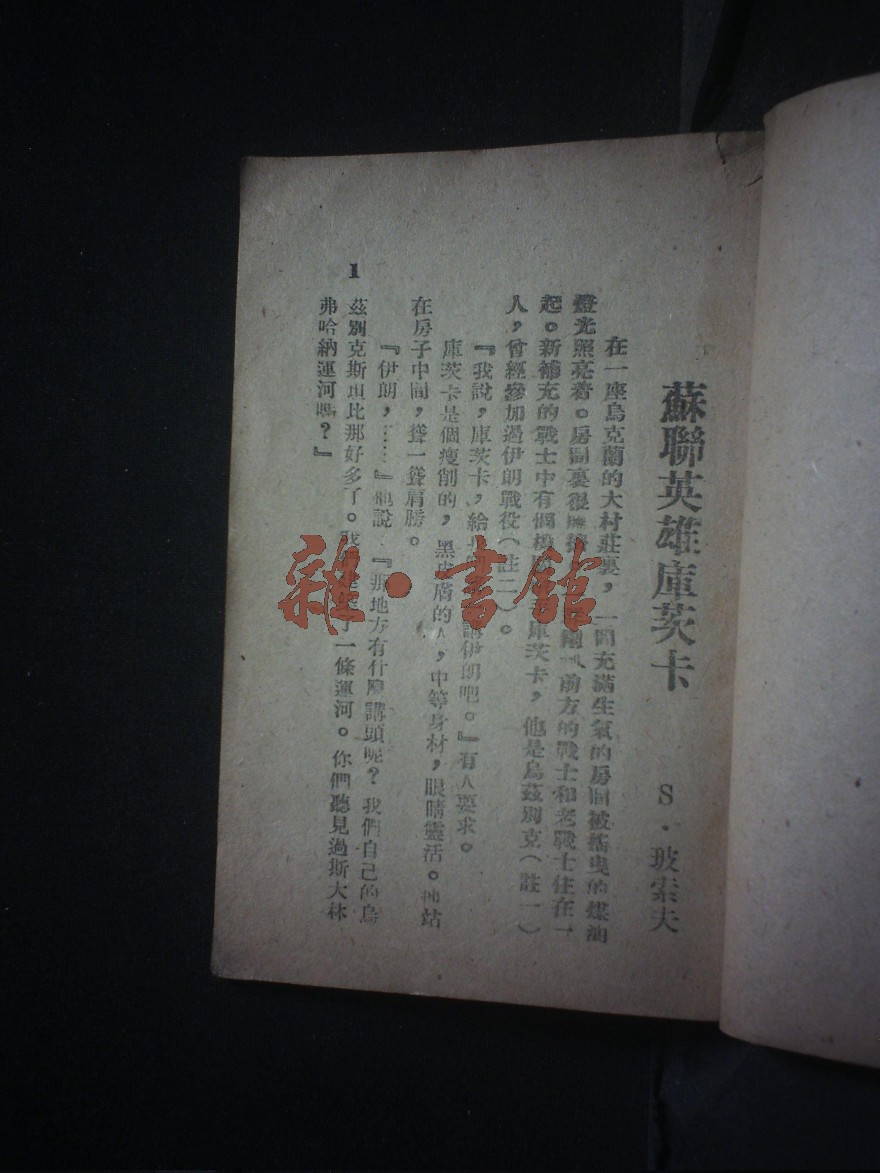 蘇聯英雄庫茨卡
S·玻索夫
在一座烏克蘭的大村莊裏，一間充滿生氣的房間被搖曳的煤油
燈光照亮着。房間裏很 前方的戰士和老戰士住在一
起。新補充的戰士中有個 庫茨卡，他是烏茲別克（註一）
人，曾經參加過伊朗戰役（註二）。
『我說，庫茨卡，給 講伊朗吧。』有人要求。
庫茨卡是個瘦削的，黑皮膚的人，中等身材，眼睛靈活。他站
在房子中間，聳一聳肩膀。
『伊朗，……』他說：『那地方有什麼講頭呢？我們自己的烏
茲別克斯坦比那好多了。我們 了一條運河。你們聽見過斯大林
弗哈納運河嗎？』
1
雜·書館